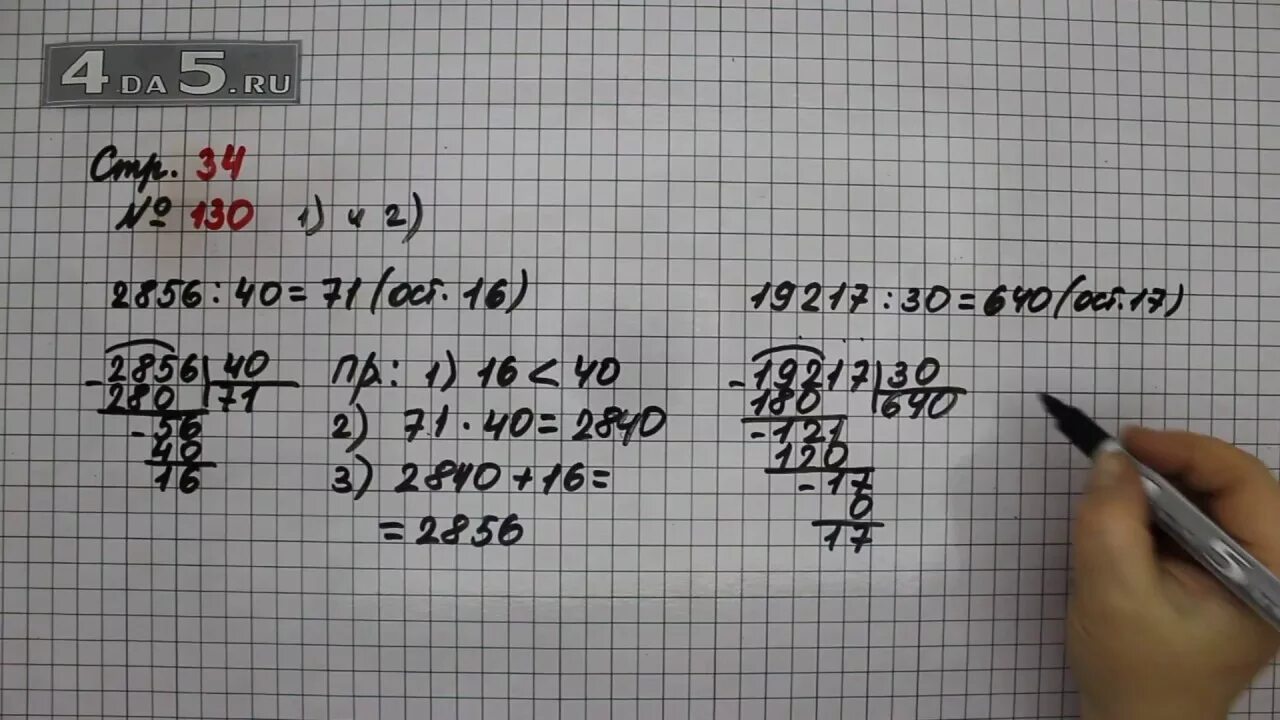 4DA5.RU
Стр. 34
№ 130 1) и 2)
2856 : 40 = 71 (ост. 16)
2856 | 40
- 280 | 71
- 56
40
16
пр: 1) 16 < 40
2) 71 · 40 = 2840
3) 2840 + 16 =
= 2856
19217 : 30 = 640 (ост. 17)
- 19217 | 30
180 | 640
- 121
120
- 17
0
17